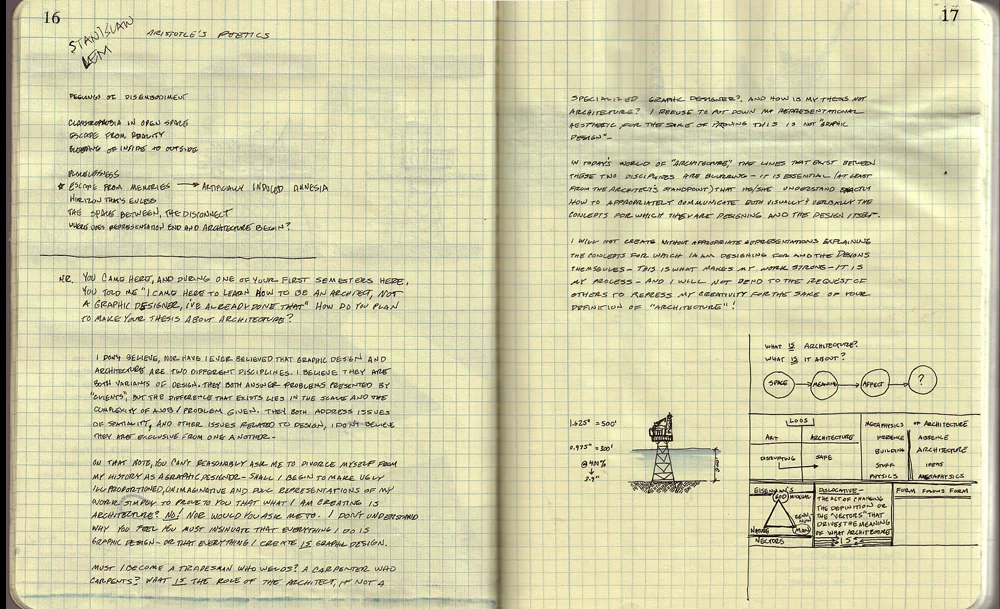 16
STANISLAW
LEM
ARISTOTLE'S POETICS
FEELINGS OF DISEMBODIMENT
CLAUSTROPHOBIA IN OPEN SPACE
ESCAPE FROM REALITY
BLEEDING OF INSIDE TO OUTSIDE
HOMELESSNESS
* ESCAPE FROM MEMORIES → ARTIFICIALLY INDUCED AMNESIA
HORIZON THAT'S ENDLESS
THE SPACE BETWEEN, THE DISCONNECT
WHERE DOES REPRESENTATION END AND ARCHITECTURE BEGIN?
YOU CAME HERE, AND DURING ONE OF YOUR FIRST SEMESTERS HERE,
YOU TOLD ME "I CAME HERE TO LEARN HOW TO BE AN ARCHITECT, NOT
A GRAPHIC DESIGNER, I'VE ALREADY DONE THAT" HOW DO YOU PLAN
TO MAKE YOUR THESIS ABOUT ARCHITECTURE?
I DON'T BELIEVE, NOR HAVE I EVER BELIEVED THAT GRAPHIC DESIGN AND
ARCHITECTURE ARE TWO DIFFERENT DISCIPLINES. I BELIEVE THEY ARE
BOTH VARIANTS OF DESIGN. THEY BOTH ANSWER PROBLEMS PRESENTED BY
"CLIENTS", BUT THE DIFFERENCE THAT EXISTS LIES IN THE SCALE AND THE
COMPLEXITY OF A JOB / PROBLEM GIVEN. THEY BOTH ADDRESS ISSUES
OF SPATIALITY, AND OTHER ISSUES RELATED TO DESIGN, I DON'T BELIEVE
THEY ARE EXCLUSIVE FROM ONE ANOTHER -
ON THAT NOTE, YOU CAN'T REASONABLY ASK ME TO DIVORCE MYSELF FROM
MY HISTORY AS A GRAPHIC DESIGNER - SHALL I BEGIN TO MAKE UGLY
ILL-PROPORTIONED, UNIMAGINATIVE AND DULL REPRESENTATIONS OF MY
WORK SIMPLY TO PROVE TO YOU THAT WHAT I AM CREATING IS
ARCHITECTURE? NO! NOR WOULD YOU ASK ME TO. I DON'T UNDERSTAND
WHY YOU FEEL YOU MUST INSINUATE THAT EVERYTHING I DO IS
GRAPHIC DESIGN - OR THAT EVERYTHING I CREATE IS GRAPHIC DESIGN.
MUST I BECOME A TRADESMAN WHO WELDS? A CARPENTER WHO
CARPENTS? WHAT IS THE ROLE OF THE ARCHITECT, IF NOT A
17
SPECIALIZED GRAPHIC DESIGNER?. AND HOW IS MY THESIS NOT
ARCHITECTURE? I REFUSE TO PUT DOWN MY REPRESENTATIONAL
AESTHETIC FOR THE SAKE OF PROVING THIS IS NOT "GRAPHIC
DESIGN" -
IN TODAY'S WORLD OF "ARCHITECTURE," THE LINES THAT EXIST BETWEEN
THESE TWO DISCIPLINES ARE BLURRING - IT IS ESSENTIAL (AT LEAST
FROM THE ARCHITECT'S STANDPOINT) THAT HE/SHE UNDERSTAND EXACTLY
HOW TO APPROPRIATELY COMMUNICATE BOTH VISUALLY & VERBALLY THE
CONCEPTS FOR WHICH THEY ARE DESIGNING AND THE DESIGN ITSELF.
I WILL NOT CREATE WITHOUT APPROPRIATE REPRESENTATIONS EXPLAINING
THE CONCEPTS FOR WHICH I AM DESIGNING FOR AND THE DESIGNS
THEMSELVES - THIS IS WHAT MAKES MY WORK STRONG - IT IS
MY PROCESS - AND I WILL NOT BEND TO THE REQUEST OF
OTHERS TO REPRESS MY CREATIVITY FOR THE SAKE OF YOUR
DEFINITION OF "ARCHITECTURE"!
WHAT IS ARCHITECTURE?
WHAT IS IT ABOUT?
SPACE → MEANING → AFFECT → ?
1.625" = 500'
0.975" = 300'
@ 400%
3.9"
LOGOS
ART ARCHITECTURE
DISRUPTING SAFE
METAPHYSICS OF ARCHITECTURE
PRESENCE ABSENCE
BUILDING ARCHITECTURE
STUFF IDEAS
PHYSICS METAPHYSICS
EISENMAN'S
GOD
NATURE MAN
VECTORS
DISLOCATIVE -
THE ACT OF CHANGING
THE DEFINITION OR
THE "VECTORS" THAT
DRIVES THE MEANING
OF WHAT ARCHITECTURE
IS
FORM FOLLOWS FORM